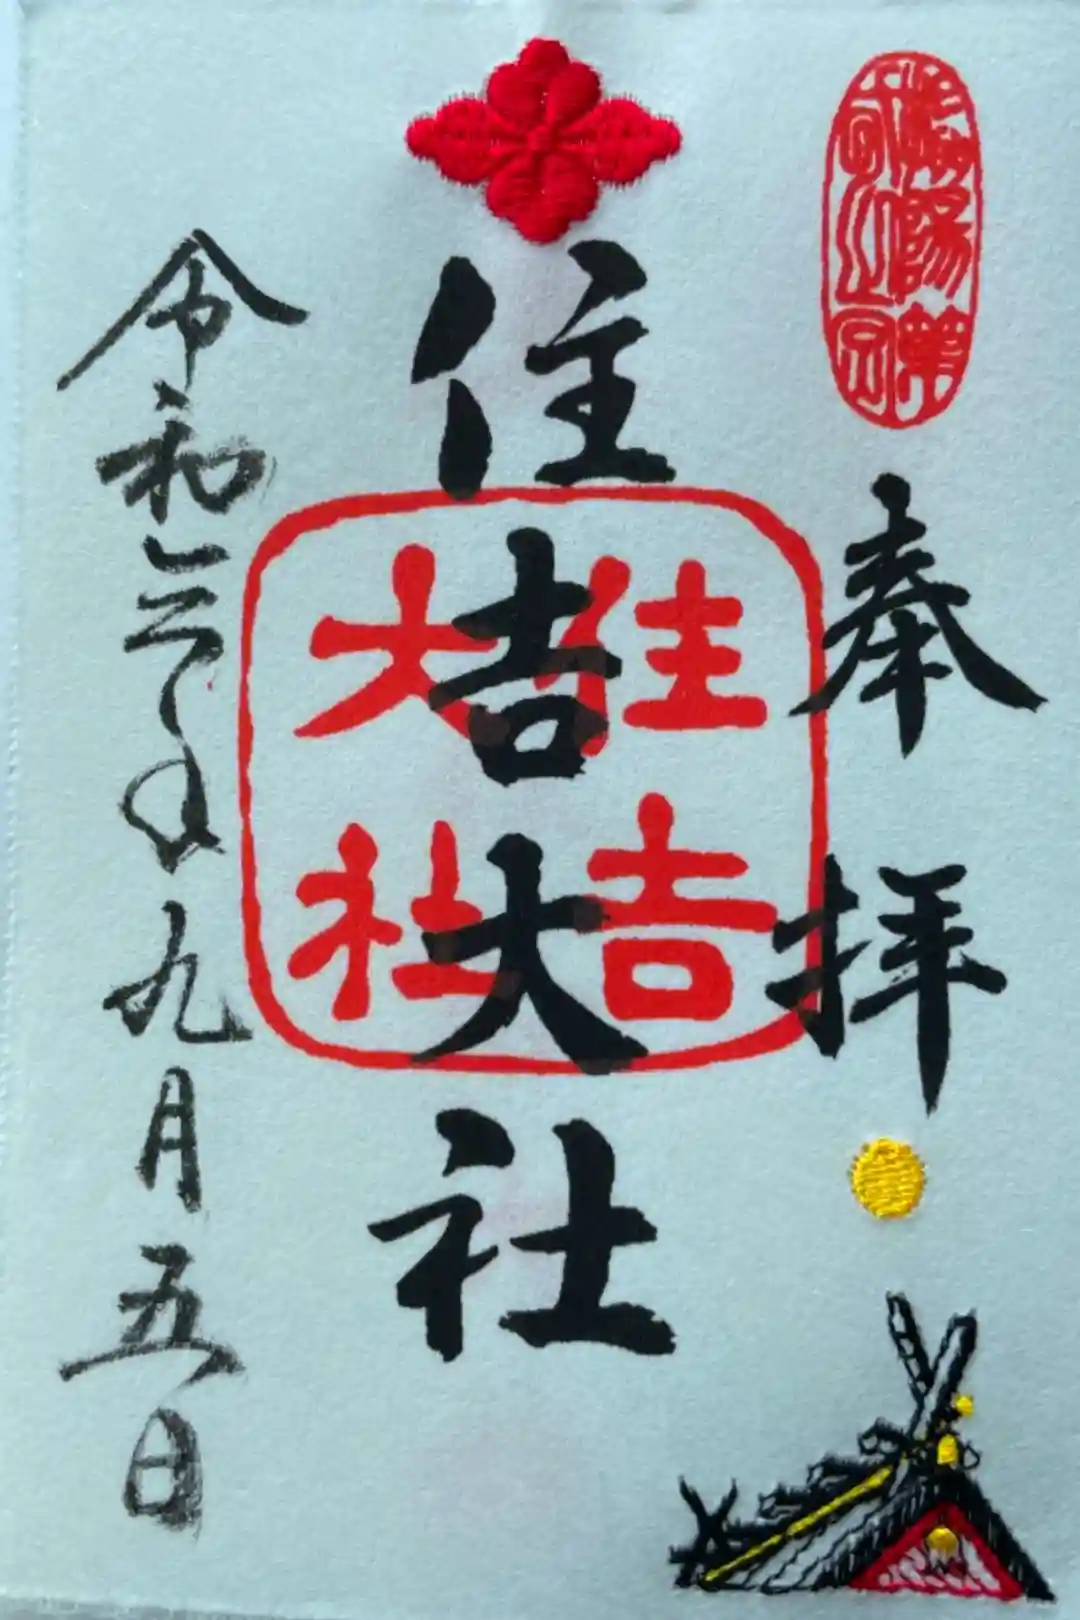 奉拝
住吉大社
住吉
大社
令和六年九月五日